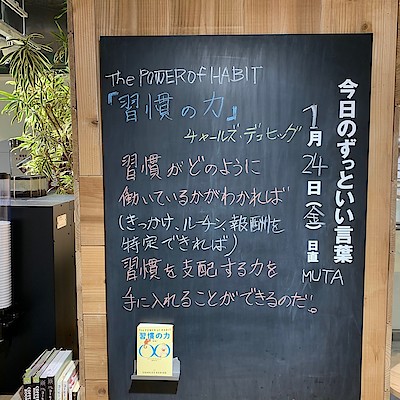 今日のずっといい言葉
1月24日(金)日直
MUTA
The POWER of HABIT
『習慣の力』
チャールズ・デュヒッグ
習慣がどのように
働いているかがわかれば
(きっかけ、ルーチン、報酬を
特定できれば)
習慣を支配する力を
手に入れることができるのだ。
習慣の力